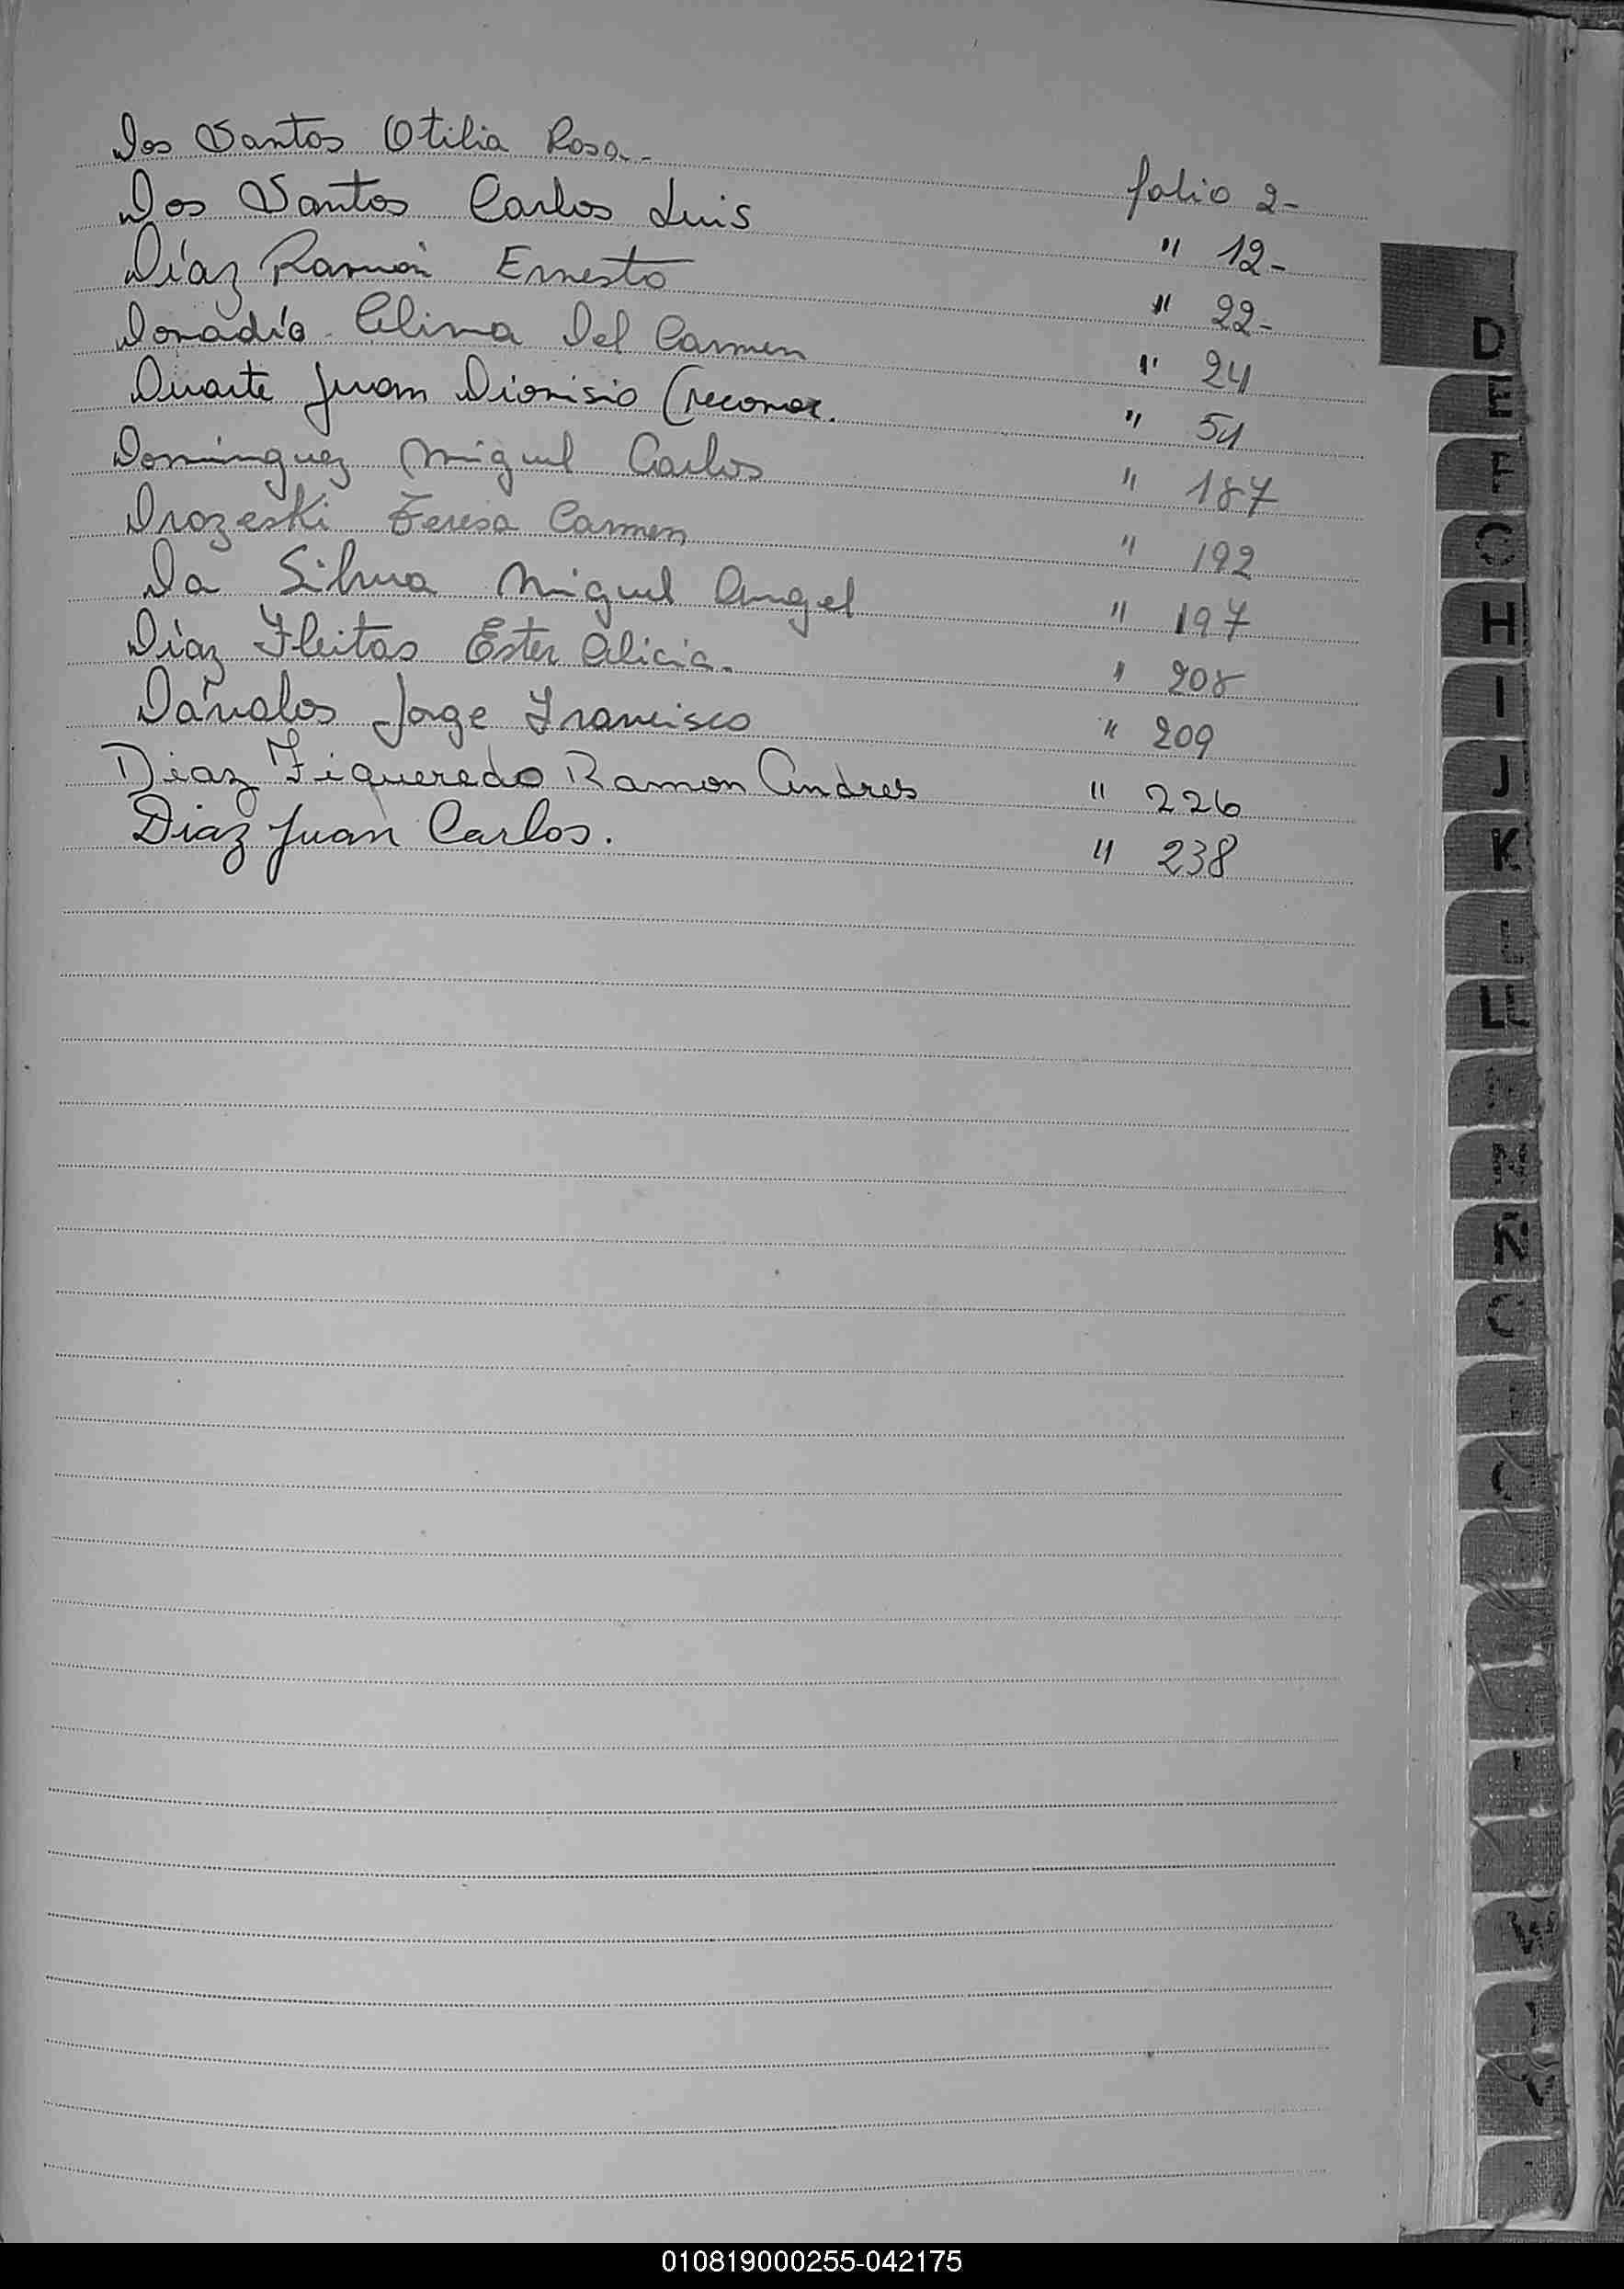 Dos Santos Otilia Rosa - folio 2-
Dos Santos Carlos Luis " 12-
Díaz Ramón Ernesto " 22-
Doradío Celina Del Carmen " 24
Duarte Juan Dionisio (reconoc. " 54
Dominguez Miguel Carlos " 187
Drozeski Teresa Carmen " 192
Da Silva Miguel Angel " 197
Díaz Fleitas Ester Alicia. " 208
Dávalos Jorge Francisco " 209
Diaz Figueredo Ramon Andres " 226
Diaz Juan Carlos. " 238
D
E
F
H
I
J
K
Ñ
010819000255-042175